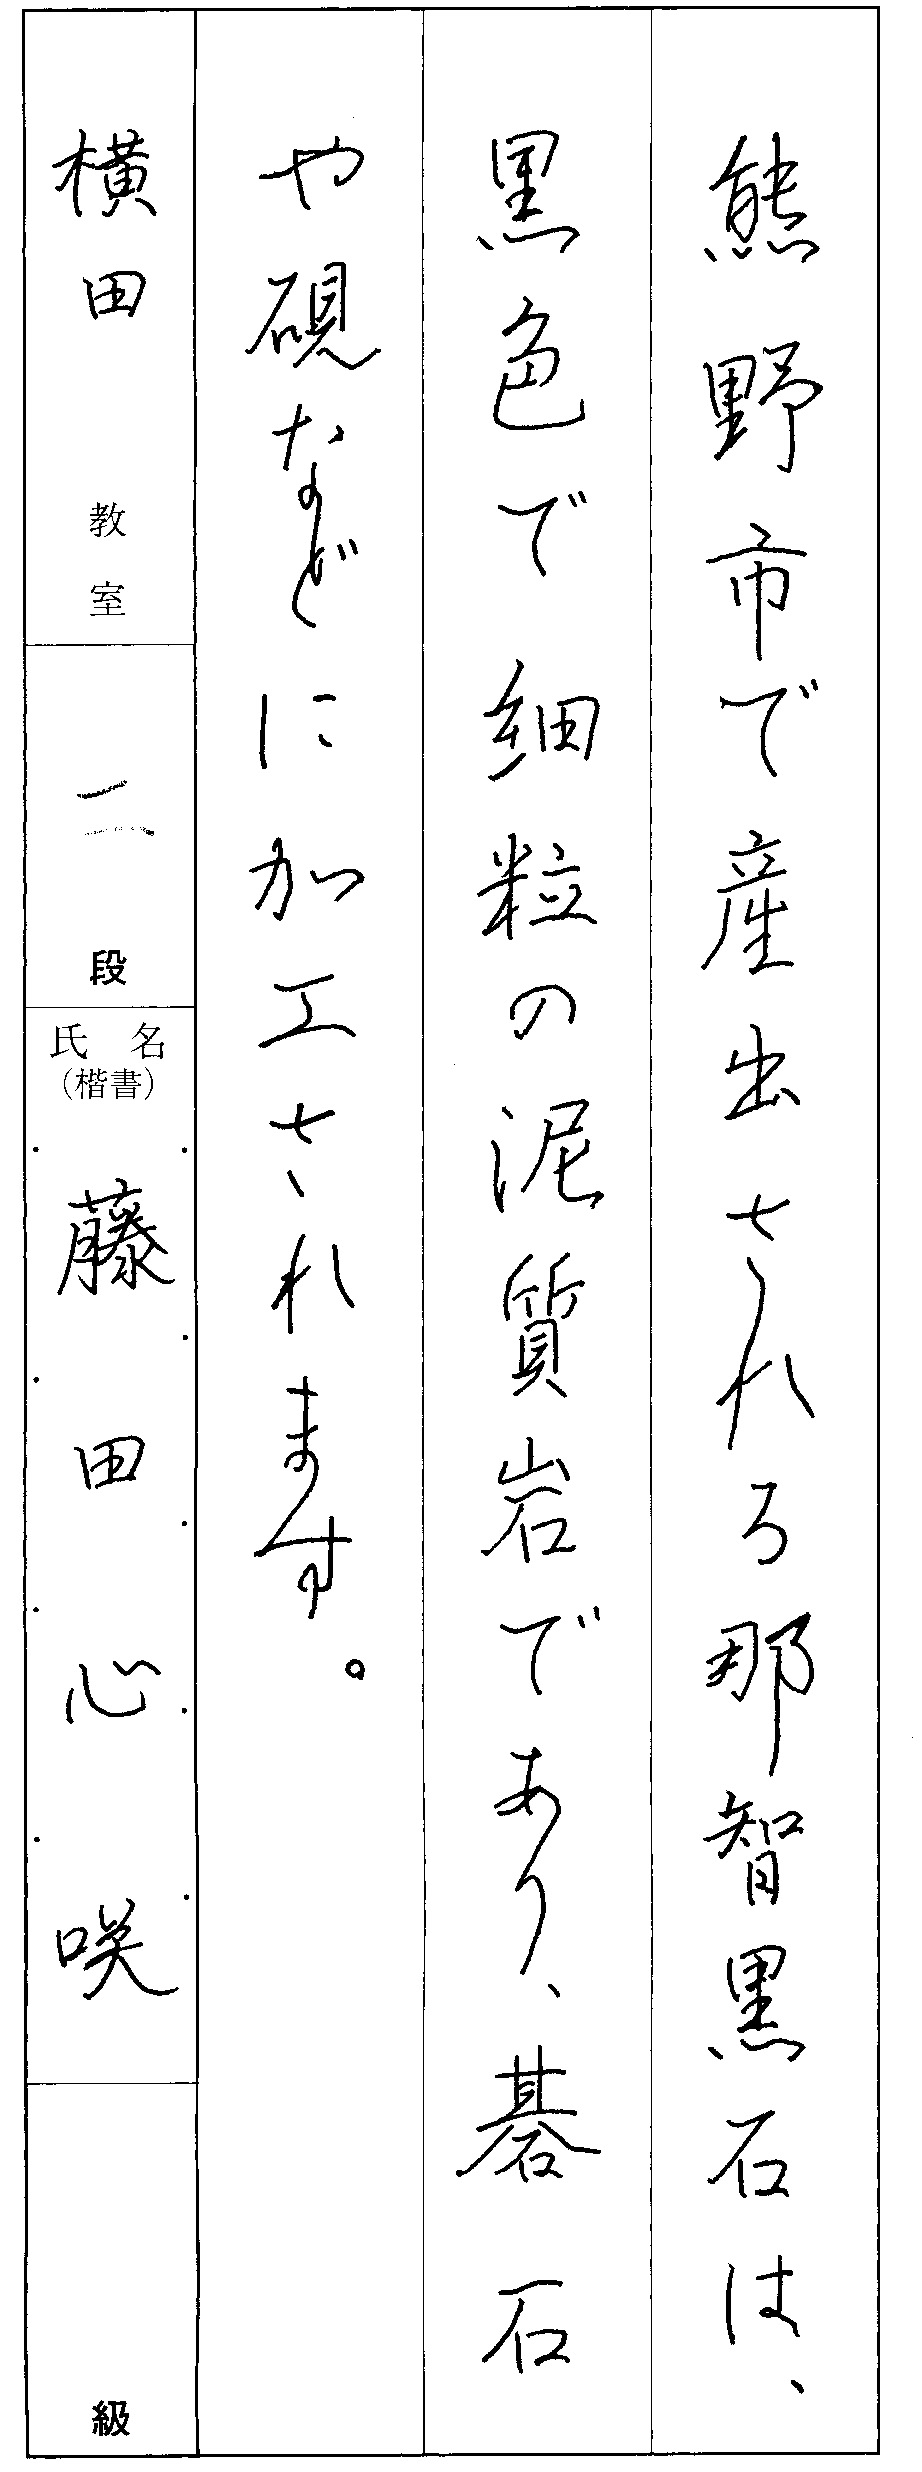 熊野市で産出される那智黒石は、
黒色で細粒の泥質岩であり、碁石
や硯などに加工されます。
横田 教室
二 段
氏名
(楷書)
藤田心咲
級